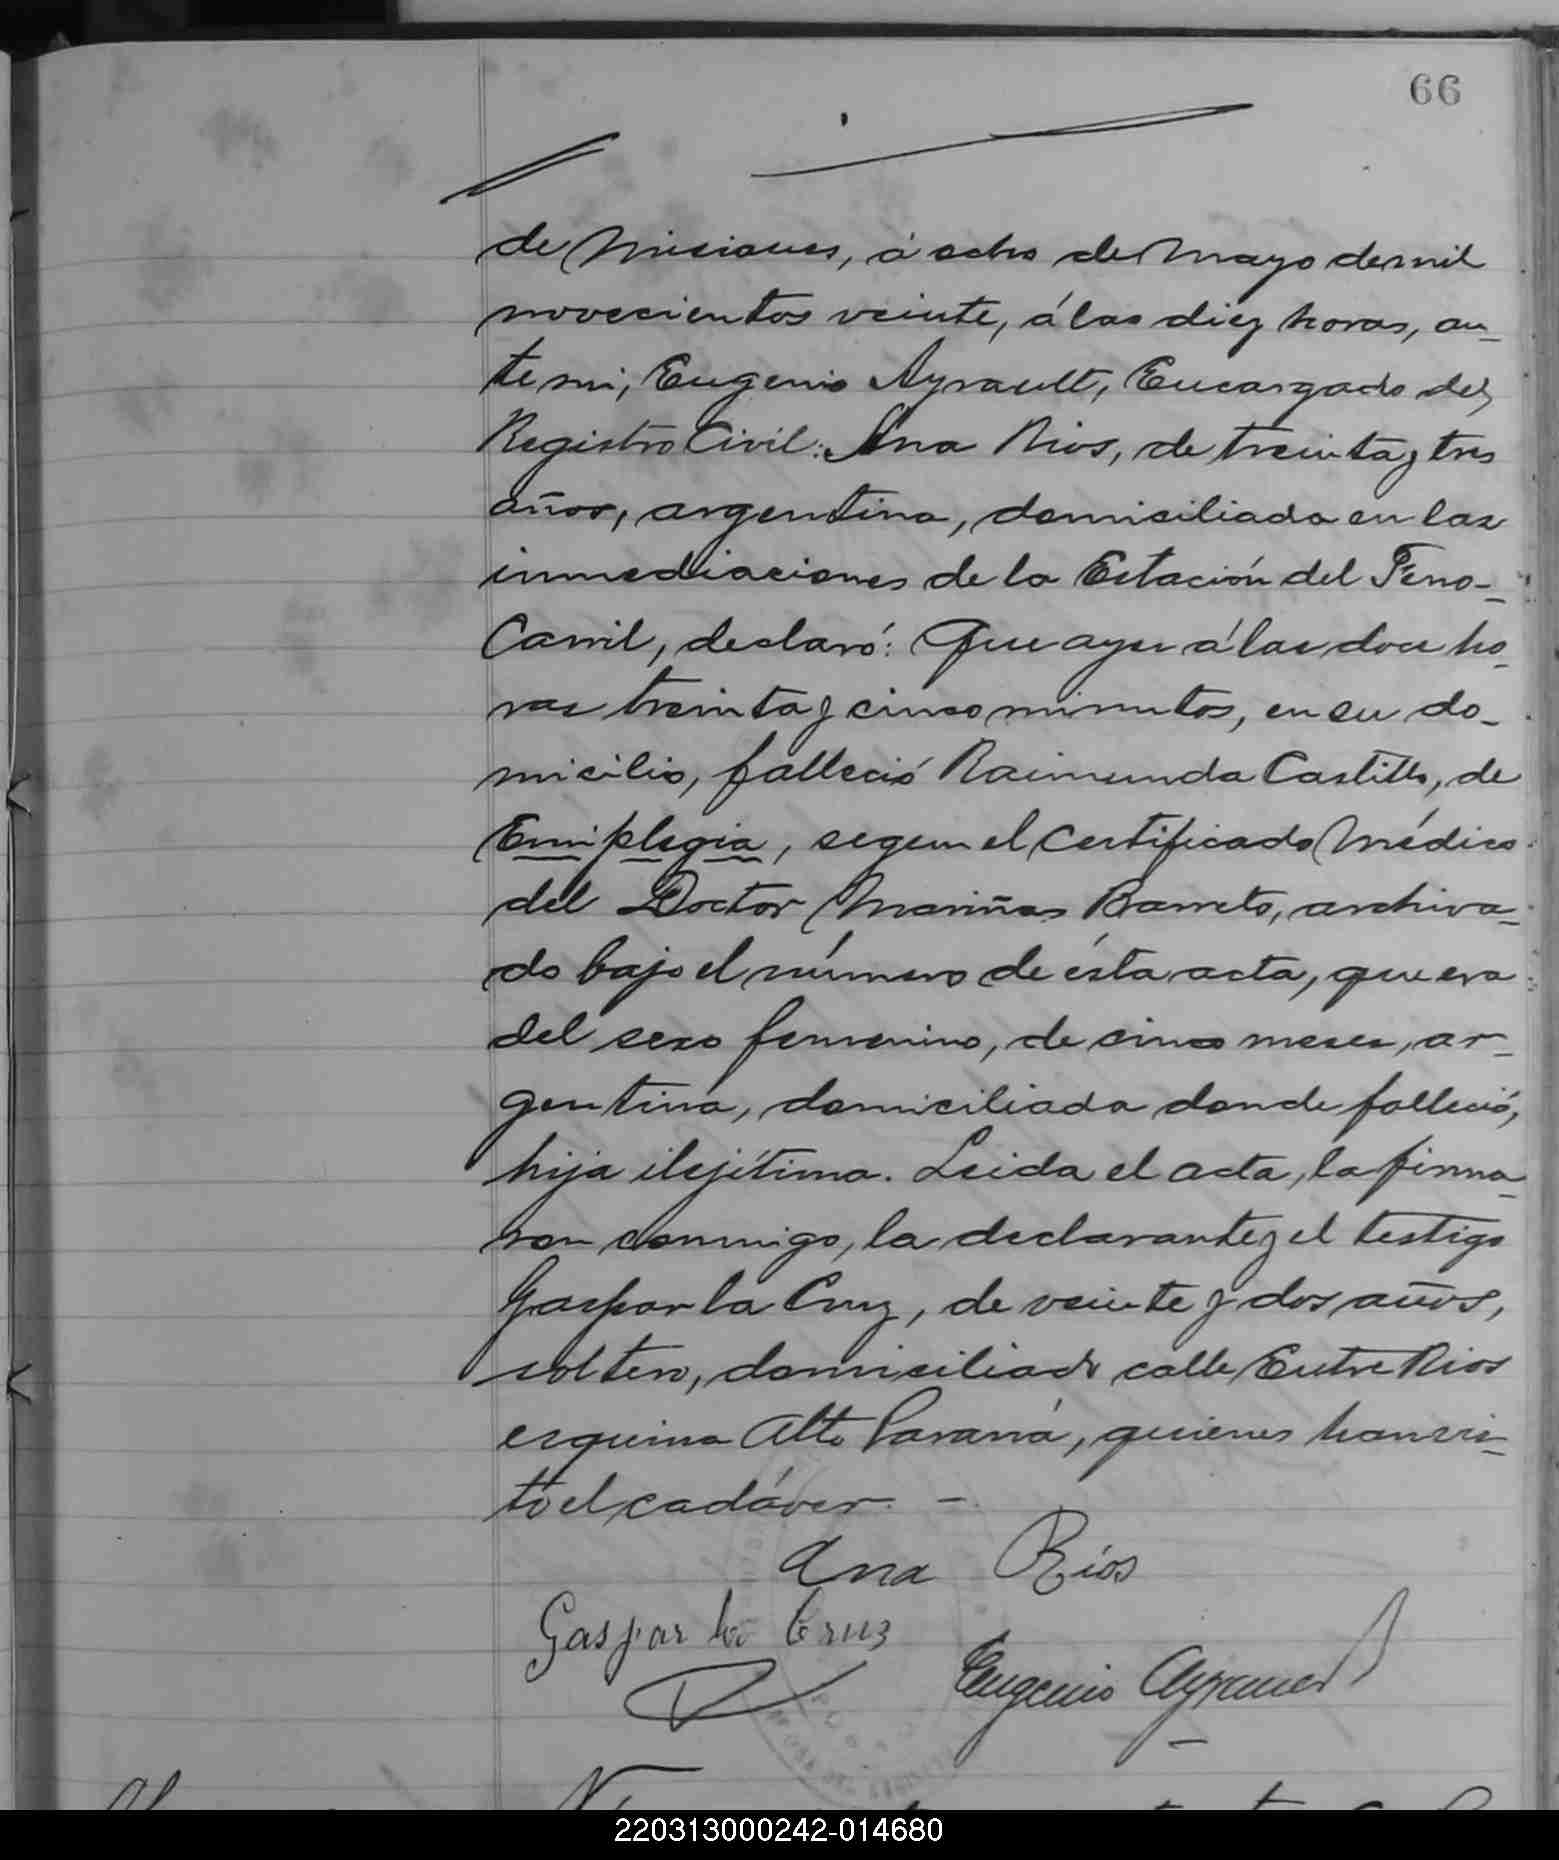 66
de Misiones, á ocho de Mayo de mil
novecientos veinte, á las diez horas, an-
te mi, Eugenio Ayrault, Encargado del
Registro Civil: Ana Rios, de treinta y tres
años, argentina, domiciliada en las
inmediaciones de la Estación del Ferro-
Carril, declaró: Que ayer á las doce ho-
ras treinta y cinco minutos, en su do-
micilio, falleció Raimunda Castillo, de
Emiplegia, segun el Certificado Médico
del Doctor Mariñas Barreto, archiva-
do bajo el número de ésta acta, que era
del sexo femenino, de cinco meses, ar-
gentina, domiciliada donde falleció,
hija ilejítima. Leida el acta, la firma-
ron conmigo, la declarante y el testigo
Gaspar la Cruz, de veinte y dos años,
soltero, domiciliado calle Entre Rios
esquina Alto Paraná, quienes han vis-
to el cadáver. -
Ana Rios
Gaspar la Cruz
Eugenio Ayrault
220313000242-014680